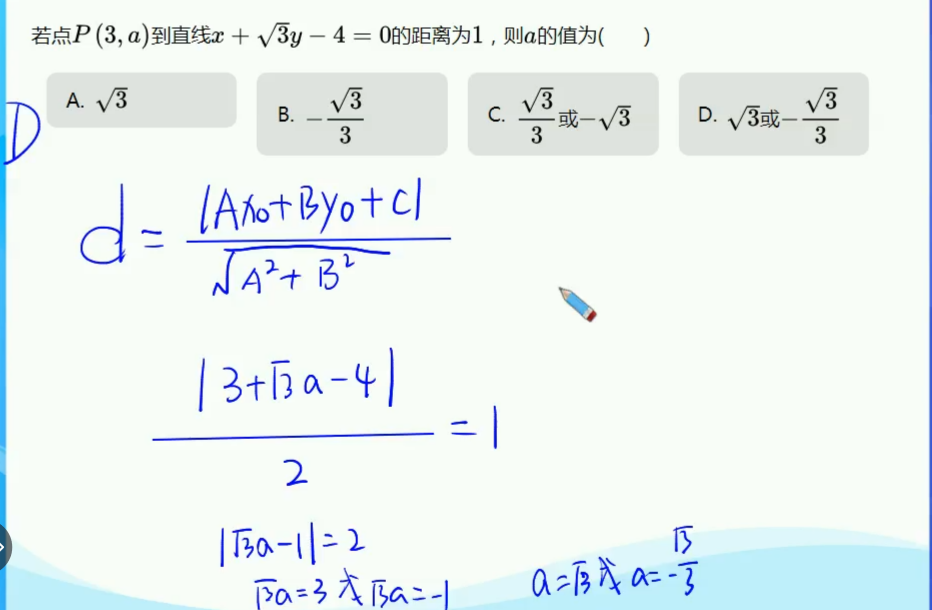 若点P(3,a)到直线x+√3y-4=0的距离为1，则a的值为(　　)
A. √3　B. -√3/3　C. √3/3或-√3　D. √3或-√3/3
D
d = |Ax₀+By₀+C| / √(A²+B²)
|3+√3a-4| / 2 = 1
|√3a-1|=2
√3a=3或√3a=-1　a=√3或a=-√3/3